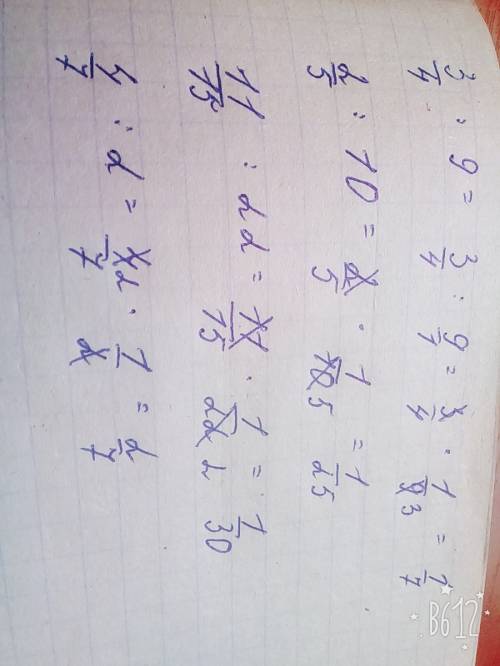 3/4 : 9 = 3/4 : 9/1 = 3/4 · 1/9 3 = 1/7
2/5 : 10 = 2/5 · 1/10 5 = 1/25
11/15 : 22 = 11/15 · 1/22 2 = 1/30
4/7 : 2 = 4/7 2 · 1/2 = 2/7
B612